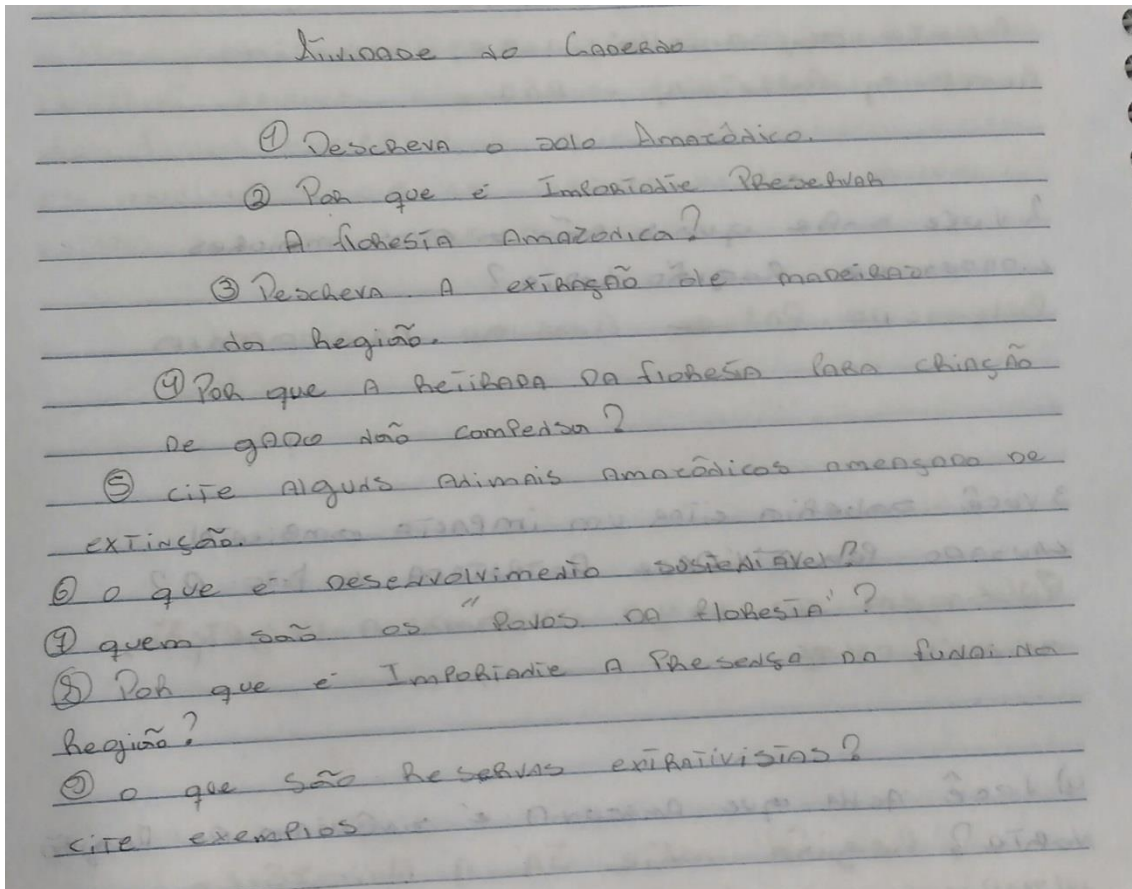 Atividade do Caderno
① Descreva o solo Amazônico.
② Por que é Importante Preservar
A floresta Amazonica?
③ Descreva A extração de madeira
da Região.
④ Por que A Retirada DA floresta PARA criação
De gADO não compensa?
⑤ cite Alguns Animais Amazônicos ameaçado De
extinção.
⑥ o que é Desenvolvimento sustentável?
⑦ quem são os "Povos DA floresta"?
⑧ Por que é Importante A Presença DA funai na
Região?
⑨ o que são Reservas extrativistas?
cite exemplos